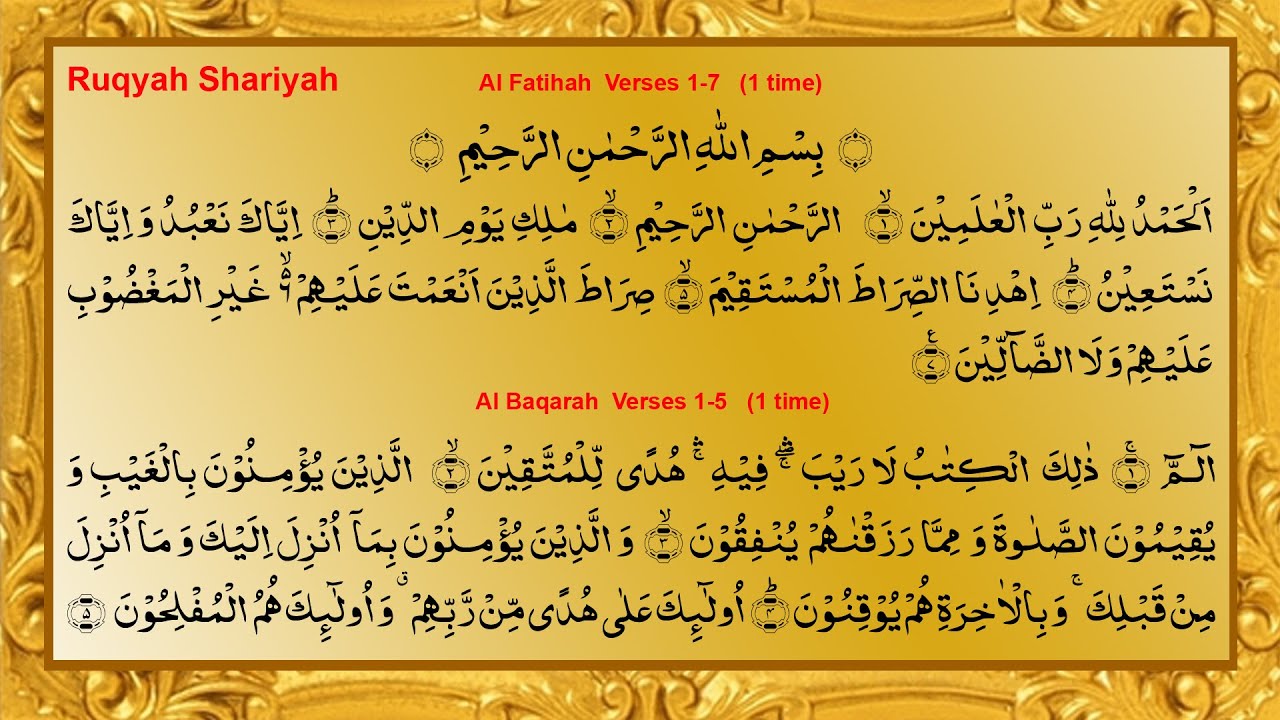 Ruqyah Shariyah
Al Fatihah Verses 1-7 (1 time)
۝ بِسْمِ اللّٰهِ الرَّحْمٰنِ الرَّحِيْمِ ۝
اَلْحَمْدُ لِلّٰهِ رَبِّ الْعٰلَمِيْنَ ۙ‏﴿۱﴾ الرَّحْمٰنِ الرَّحِيْمِ ۙ‏﴿۲﴾ مٰلِكِ يَوْمِ الدِّيْنِ ؕ‏﴿۳﴾ اِيَّاكَ نَعْبُدُ وَ اِيَّاكَ
نَسْتَعِيْنُ ؕ‏﴿۴﴾ اِهْدِنَا الصِّرَاطَ الْمُسْتَقِيْمَ ۙ‏﴿۵﴾ صِرَاطَ الَّذِيْنَ اَنْعَمْتَ عَلَيْهِمْ ۙ۬ غَيْرِ الْمَغْضُوْبِ
عَلَيْهِمْ وَلَا الضَّآلِّيْنَ ‏﴿۷﴾
Al Baqarah Verses 1-5 (1 time)
الٓـمّٓ ۚ‏﴿۱﴾ ذٰلِكَ الْكِتٰبُ لَا رَيْبَ ۛۚ فِيْهِ ۛۚ هُدًى لِّلْمُتَّقِيْنَ ۙ‏﴿۲﴾ الَّذِيْنَ يُؤْمِنُوْنَ بِالْغَيْبِ وَ
يُقِيْمُوْنَ الصَّلٰوةَ وَ مِمَّا رَزَقْنٰهُمْ يُنْفِقُوْنَ ۙ‏﴿۳﴾ وَالَّذِيْنَ يُؤْمِنُوْنَ بِمَآ اُنْزِلَ اِلَيْكَ وَ مَآ اُنْزِلَ
مِنْ قَبْلِكَ ۚ وَبِالْاٰخِرَةِ هُمْ يُوْقِنُوْنَ ؕ‏﴿۴﴾ اُولٰٓٮِٕكَ عَلٰى هُدًى مِّنْ رَّبِّهِمْ ۗ وَاُولٰٓٮِٕكَ هُمُ الْمُفْلِحُوْنَ ‏﴿۵﴾